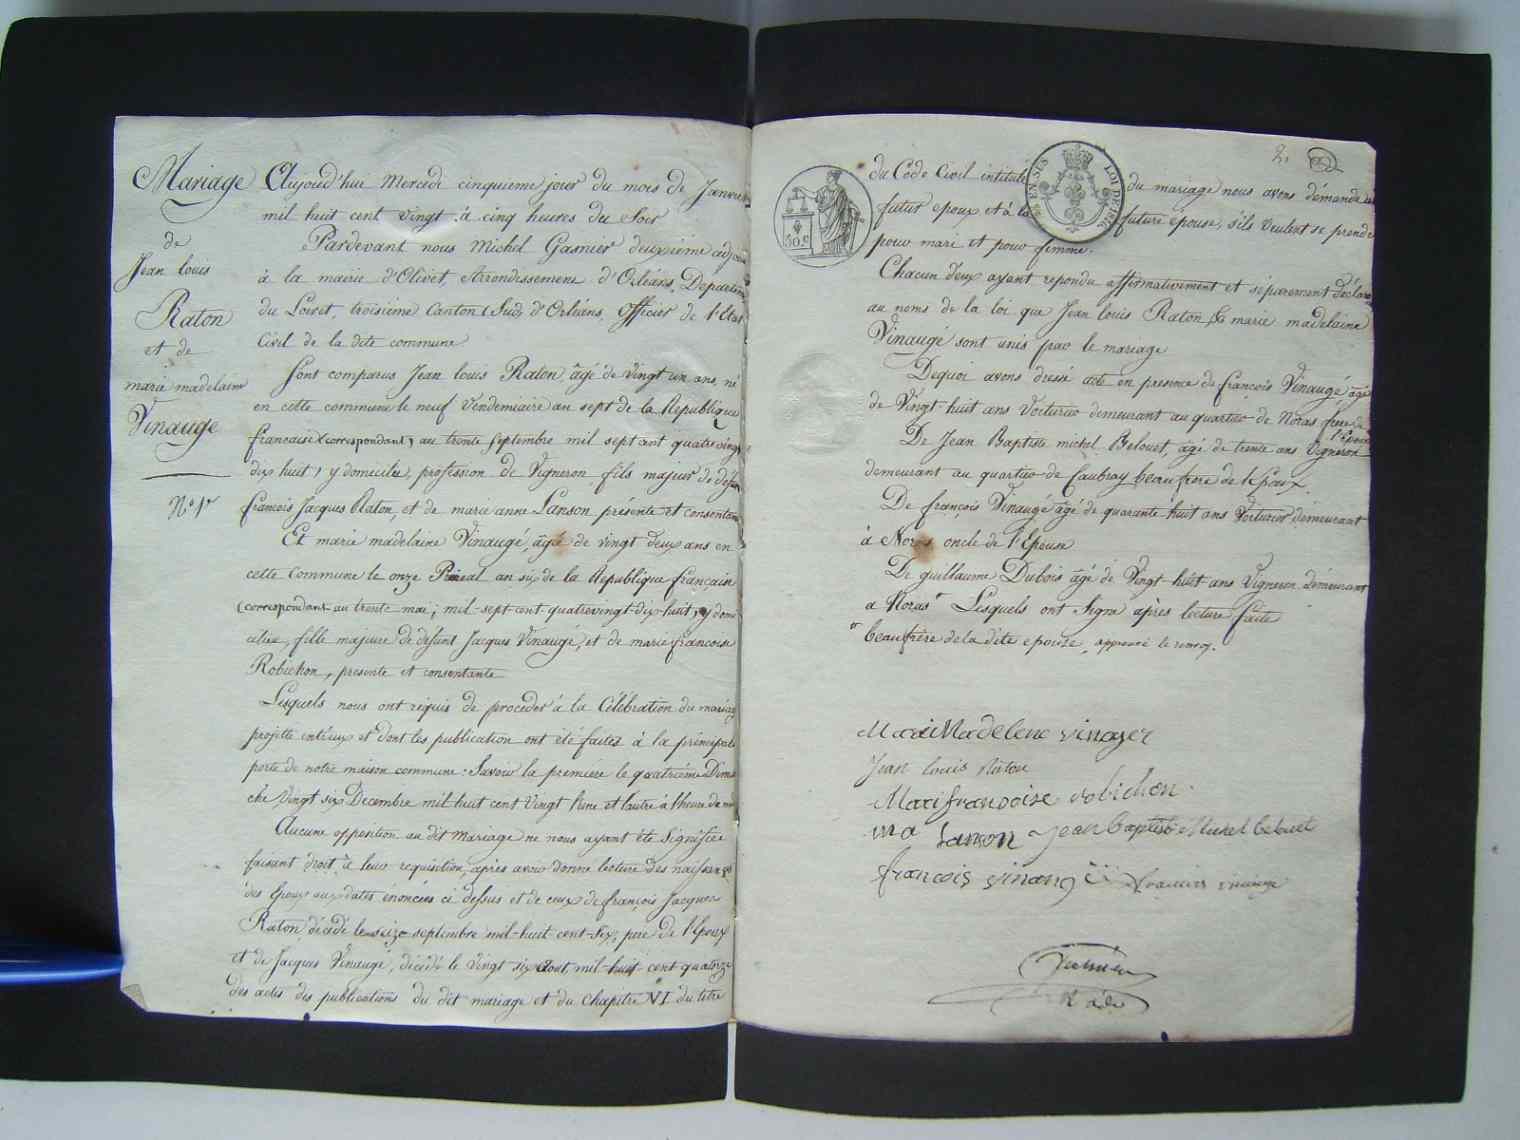 Mariage
de
Jean louis
Raton
et de
marie madelaine
Vinaugé
N.° 1.er
Aujourd'hui Mercredi cinquieme jour du mois de Janvier
mil huit cent vingt à cinq heures du Soir
Pardevant nous Michel Gasnier deuxieme adjoint
à la mairie d'Olivet, Arrondissement d'Orléans, Departem
du Loiret, troisieme Canton (Sud) d'Orléans, officier de l'Etat
Civil de la dite commune
Sont comparus Jean louis Raton, âgé de vingt un ans, né
en cette commune le neuf Vendemiaire an sept de la Republique
francaise (correspondant au trente septembre mil sept cent quatrevingt
dix huit) y domicilié, profession de Vigneron, fils majeur de defunt
francois Jacques Raton, et de marie anne Lanson présente et consentante
Et marie madelaine Vinaugé, âgée de vingt deux ans en
cette commune le onze Prairial an six de la Republique francaise
(correspondant au trente mai, mil-sept-cent quatrevingt-dix-huit) y domi
ciliée, fille majeure de défunt Jacques Vinaugé, et de marie francoise
Robichon, presente et consentante
Lesquels nous ont requis de procéder à la Célébration du mariage
projetté entreux et dont les publication ont été faites à la principale
porte de notre maison commune: Savoir la première le quatrième Diman
che vingt six Decembre mil huit cent vingt l'une et l'autre à l'heure de midi
Aucune opposition au dit Mariage ne nous ayant été Signifiée
faisant droit à leur requisition, après avoir donné lecture des naissances
des Epoux aux dates énoncées ci dessus et de ceux de françois Jacques
Raton, décédé le seize septembre mil-huit cent-six, pere de l'Epoux
et de Jacques Vinaugé, décédé le vingt six aout mil-huit-cent quatorze
des actes des publications du dit mariage et du chapitre VI du titre
2.
50.c
EN SUS
LOI DE 1816
du Code Civil intitulé du mariage nous avons démandé au
futur epoux et à la future epouse, s'ils veulent se prendre
pour mari et pour femme.
Chacun d'eux ayant repondu affirmativement et séparement déclare
au noms de la loi que Jean louis Raton, & marie madelaine
Vinaugé sont unis par le mariage
Dequoi avons dressé acte en presence de françois Vinaugé, âgé
de Vingt-huit ans Voiturier demeurant au quartier de Noras frere de
l'épouse
De Jean Baptiste michel Belouet, âgé de trente ans Vigneron
demeurant au quartier de Caubray beau frere de l'Epoux.
De françois Vinaugé âgé de quarante huit ans Voiturier demeurant
à Noras oncle de l'Epouse
De guillaume Dubois âgé de Vingt-huit ans Vigneron demeurant
a Noras Lesquels ont Signé après lecture faite
beaufrère de la dite epouse, approuvé le renvoy.
Marai Madelene vinayer
Jean louis Raton
Mari françoise robichon
ma Lanson Jean baptiste Michel belouet
françois vinangé francois vinauge
Gasnier